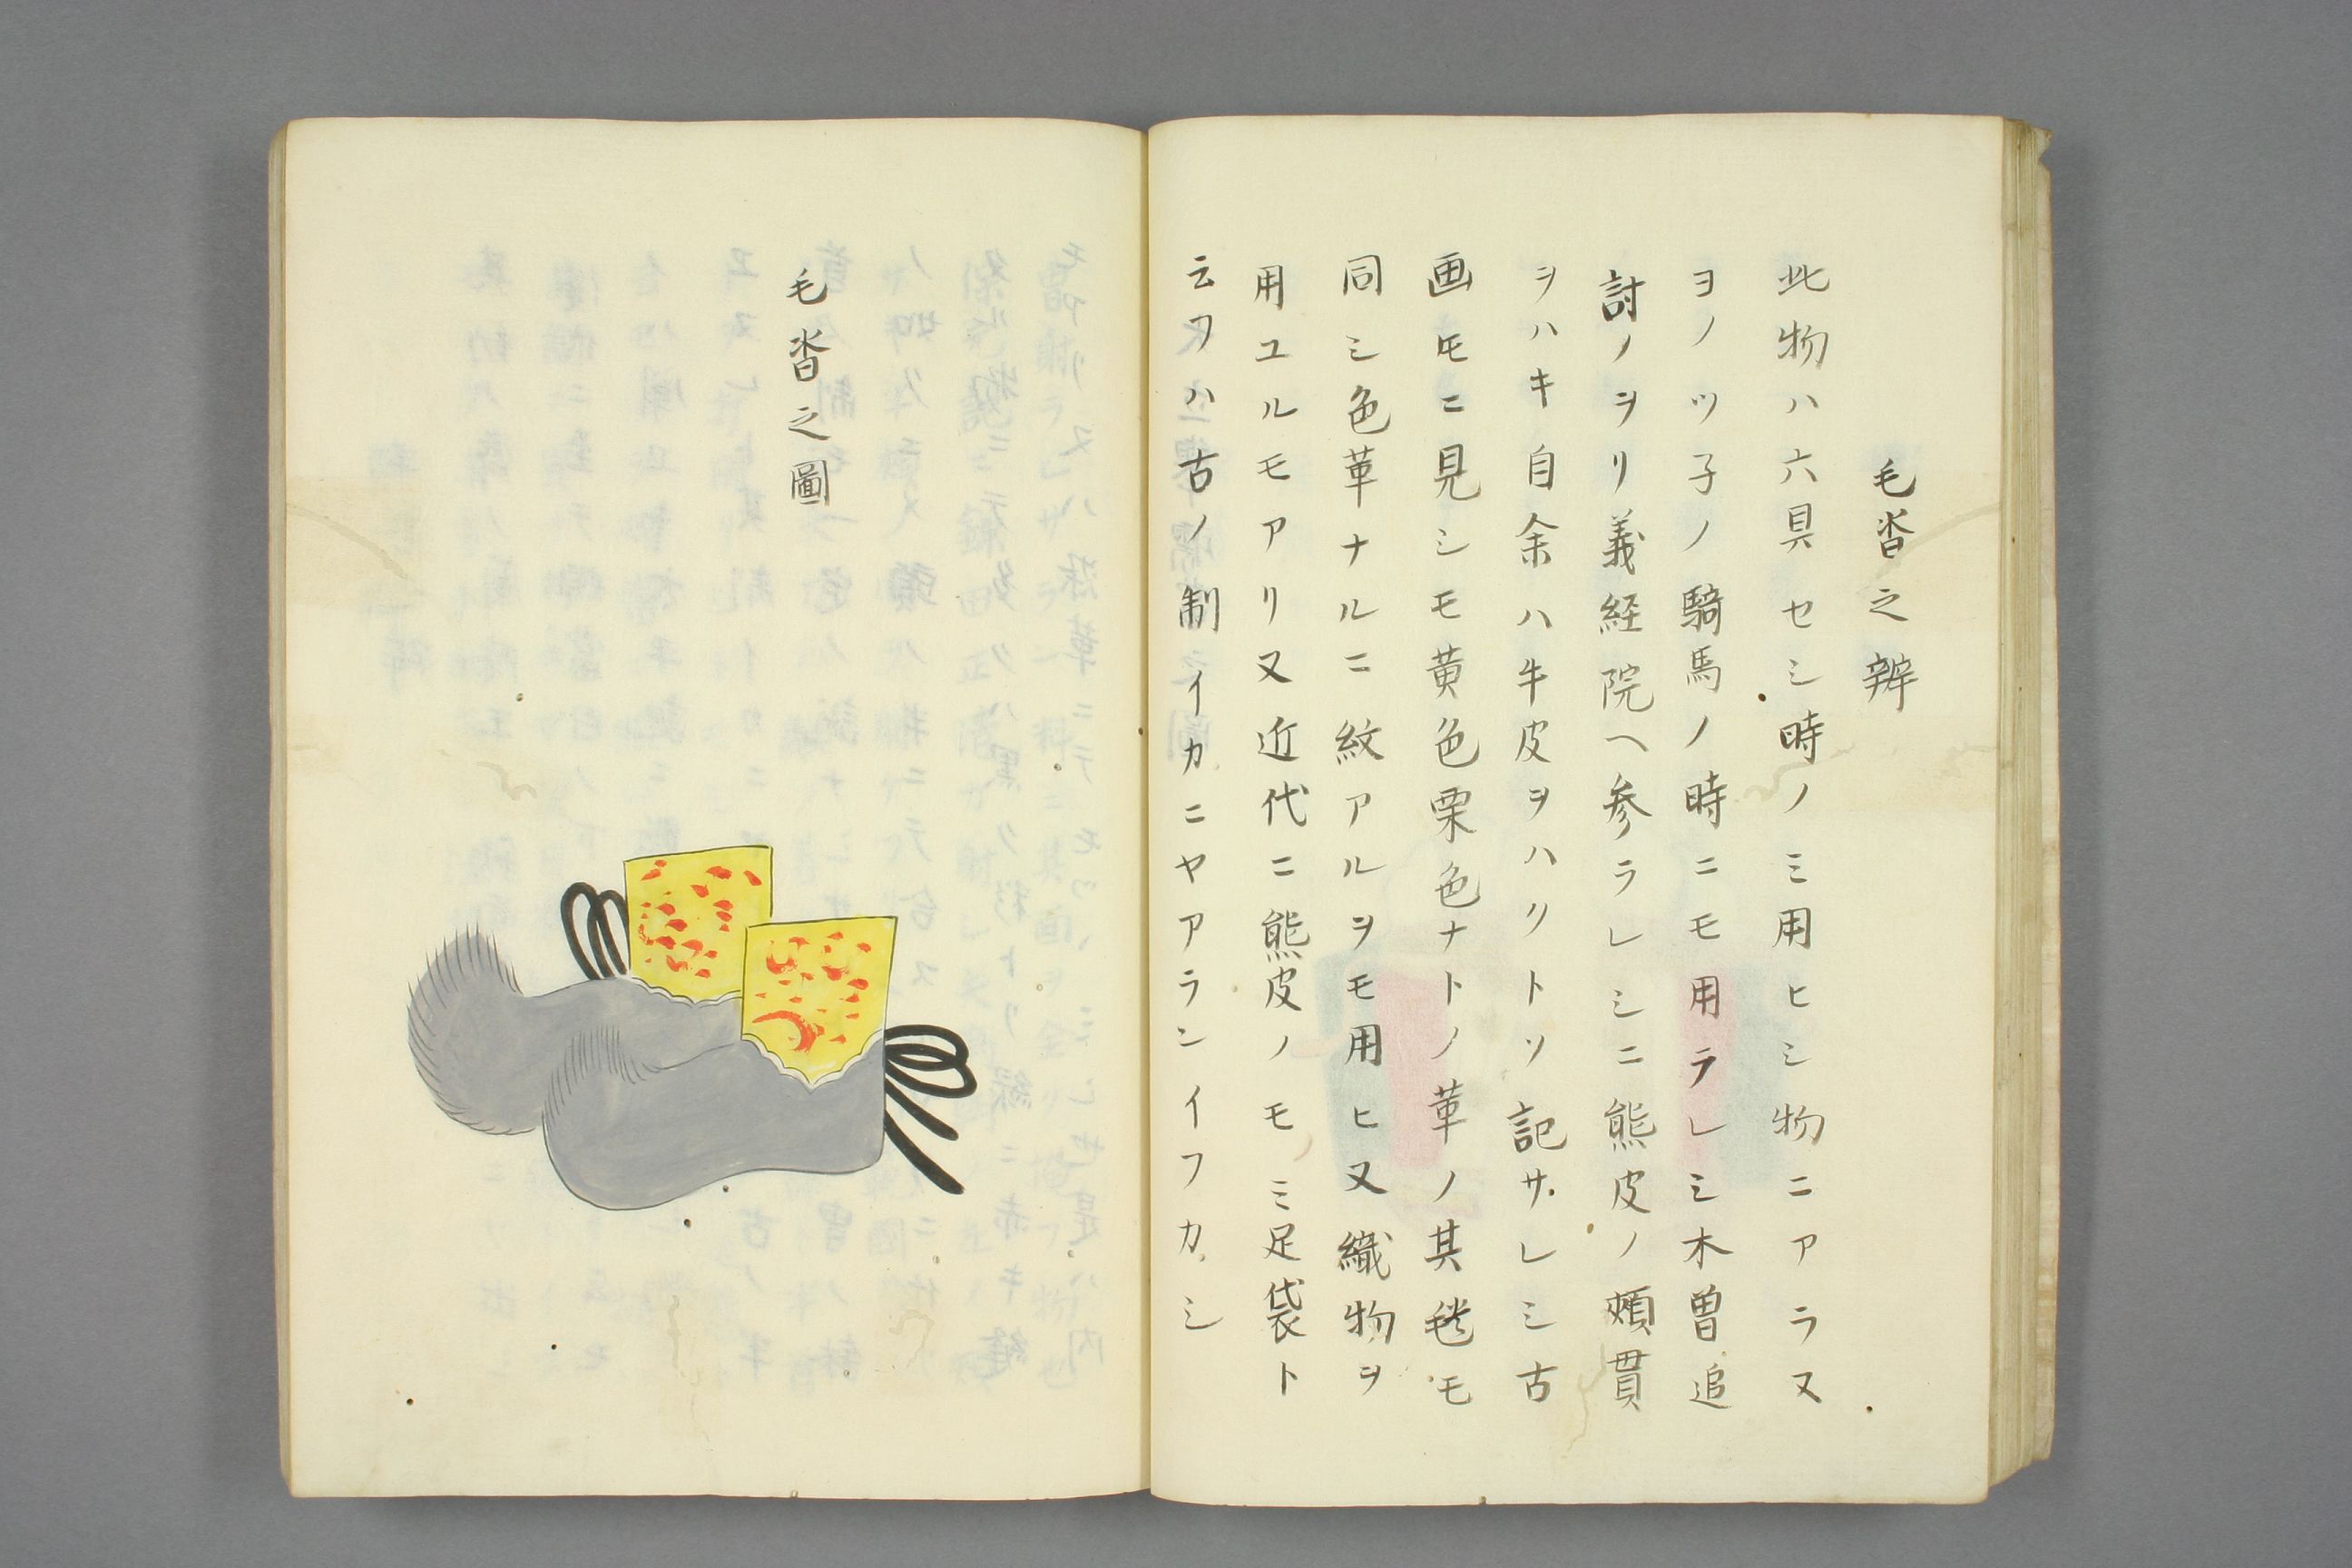 毛沓之辨
此物ハ六具セシ時ノミ用ヒシ物ニアラス
ヨノツ子ノ騎馬ノ時ニモ用ラレシ木曽追
討ノヲリ義経院ヘ参ラレシニ熊皮ノ頬貫
ヲハキ自余ハ牛皮ヲハクトソ記サレシ古
画ニ見シモ黄色栗色ナトノ革ノ其毯モ
同シ色革ナルニ紋アルヲモ用ヒ又織物ヲ
用ユルモアリ又近代ニ熊皮ノモミ足袋ト
云フハ古ノ制イカニヤアランイフカシ
毛沓之圖